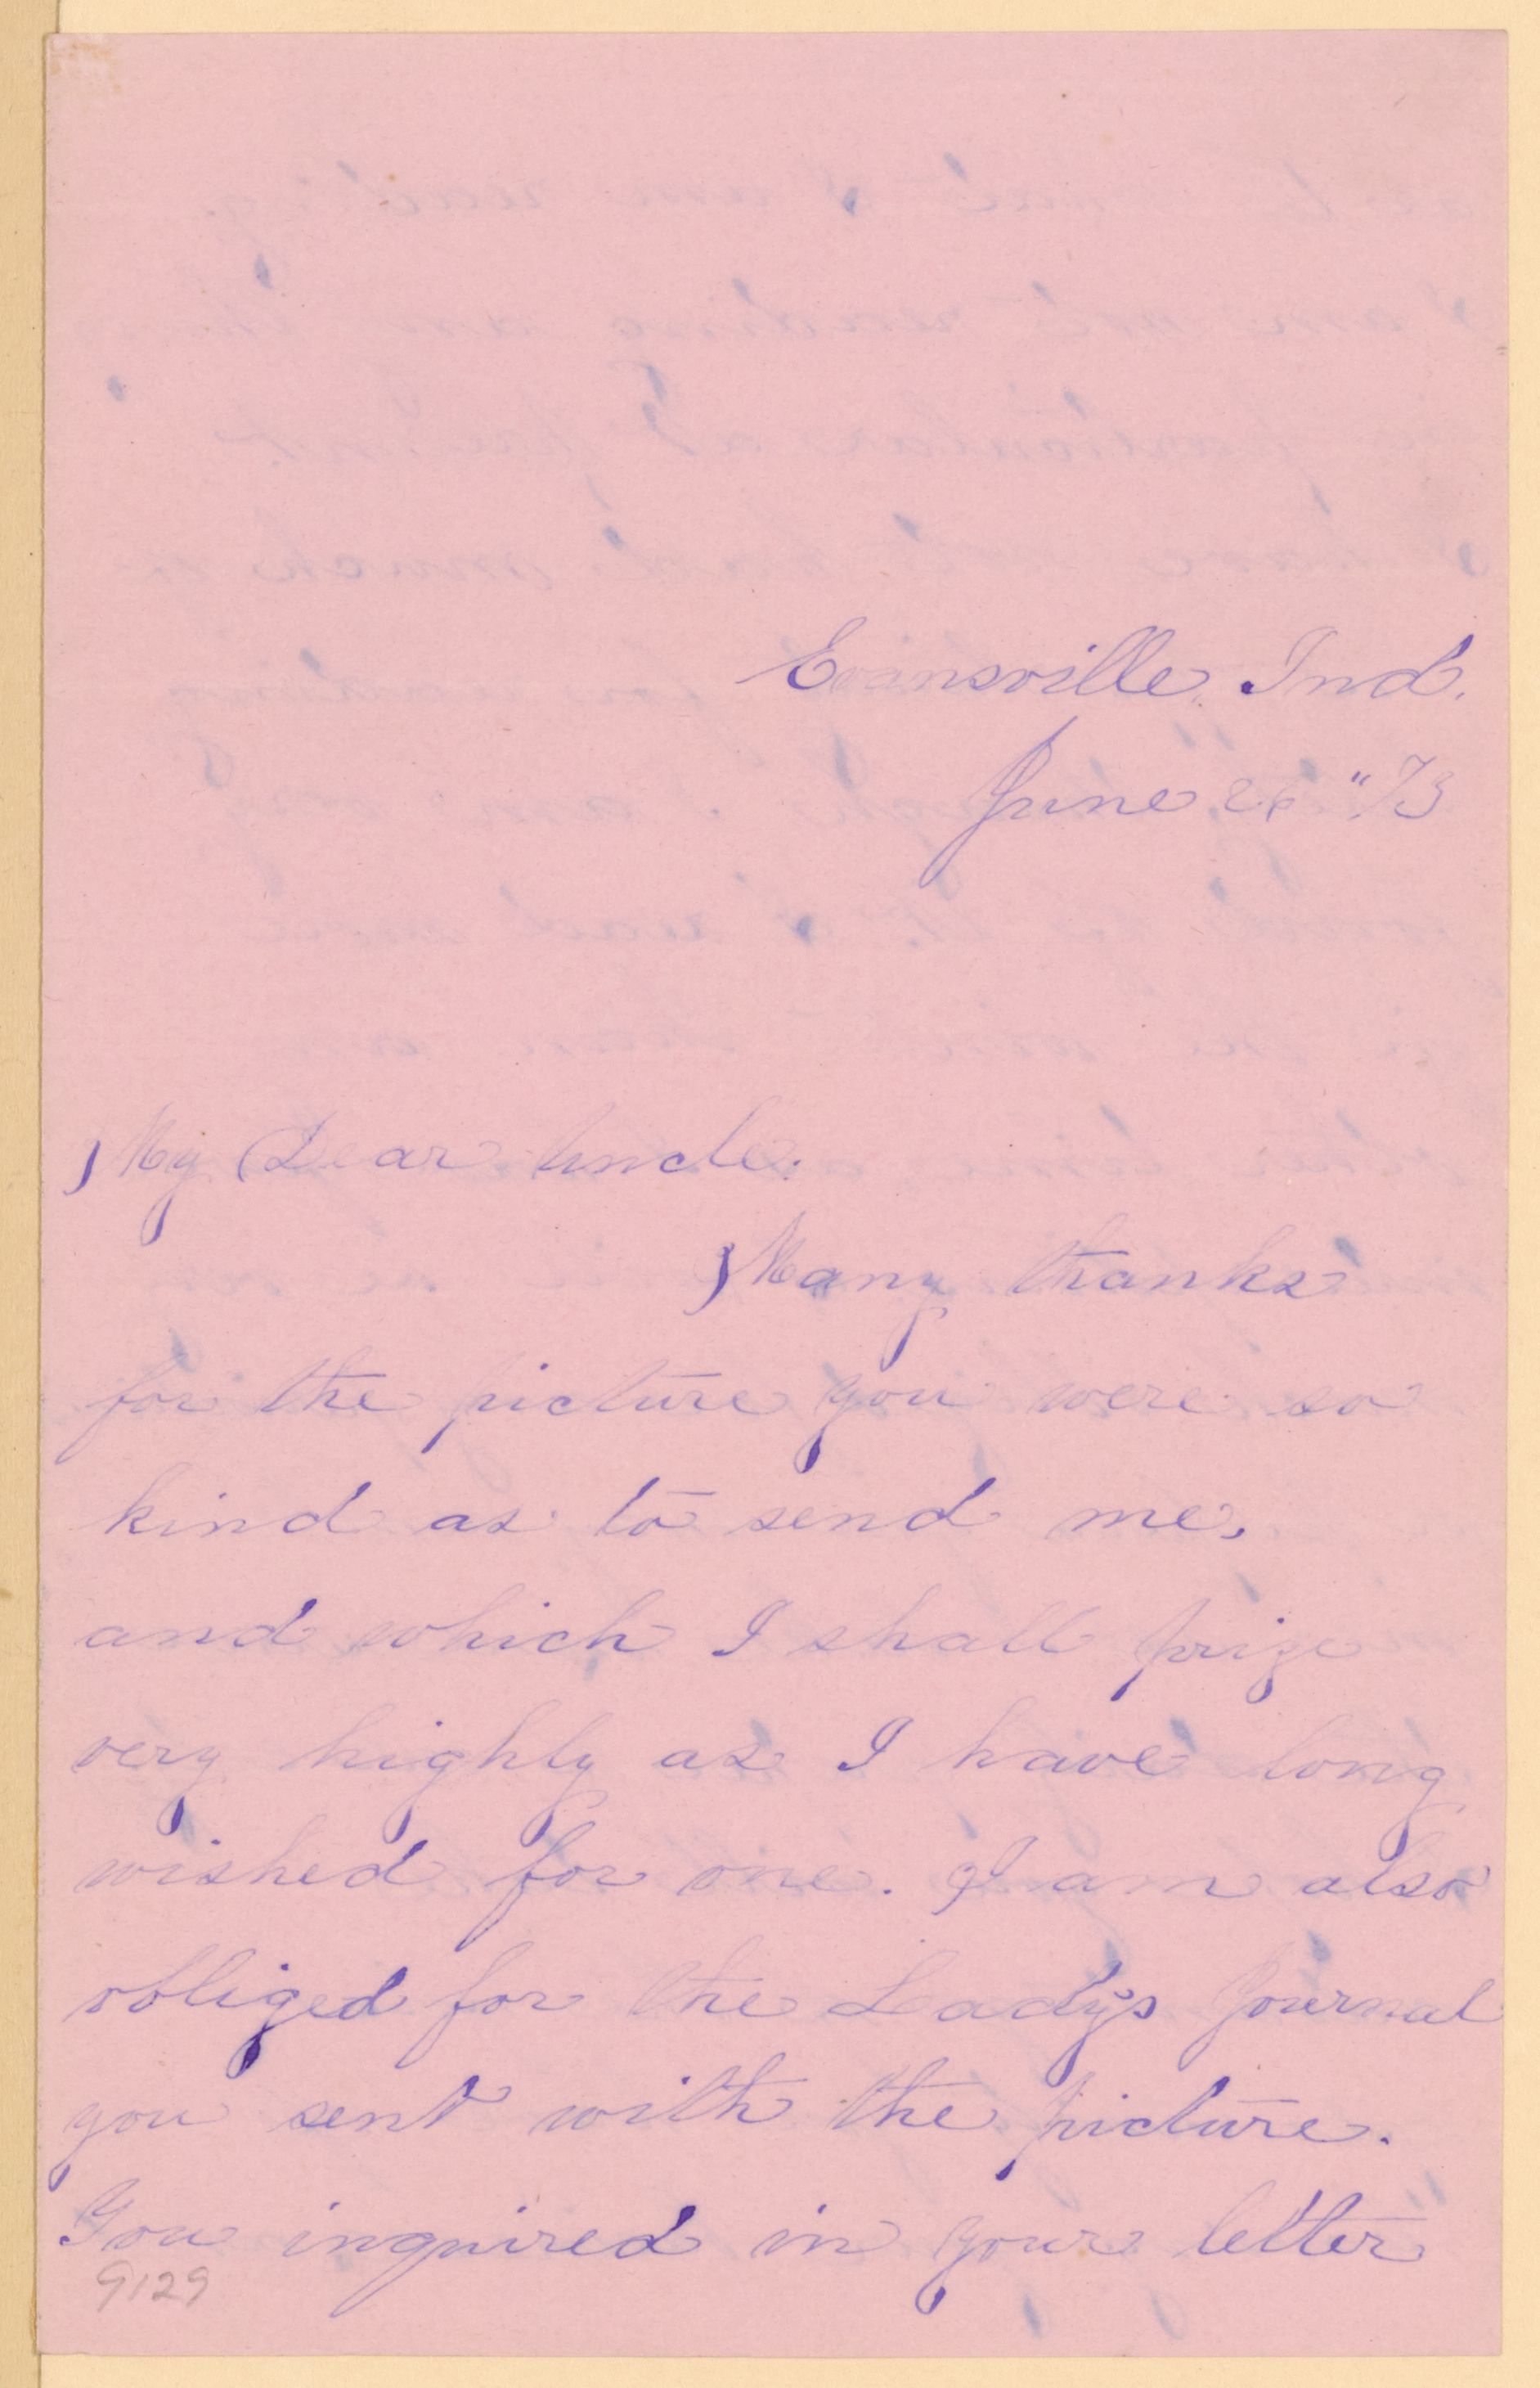 Evansville. Ind.
June 26 "73
My Dear Uncle.
Many thanks
for the picture you were so
kind as to send me,
and which I shall prize
very highly as I have long
wished for one. I am also
obliged for the Lady's Journal
you sent with the picture.
You inquired in your letter
9129